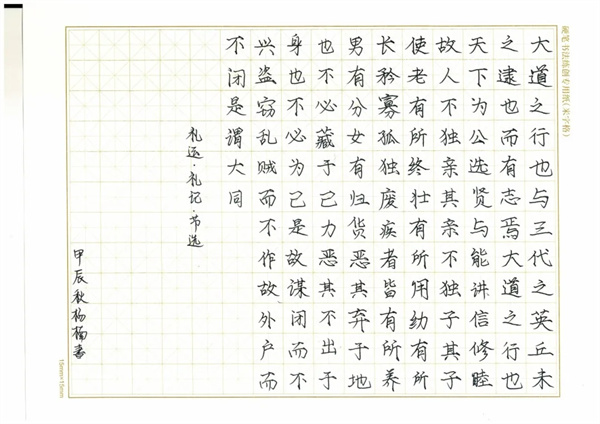 硬笔书法练创专用纸(米字格)
大道之行也与三代之英丘未
之逮也而有志焉大道之行也
天下为公选贤与能讲信修睦
故人不独亲其亲不独子其子
使老有所终壮有所用幼有所
长矜寡孤独废疾者皆有所养
男有分女有归货恶其弃于地
也不必藏于己力恶其不出于
身也不必为己是故谋闭而不
兴盗窃乱贼而不作故外户而
不闭是谓大同
礼运·礼记·节选
甲辰秋杨楠书
15mm×15mm